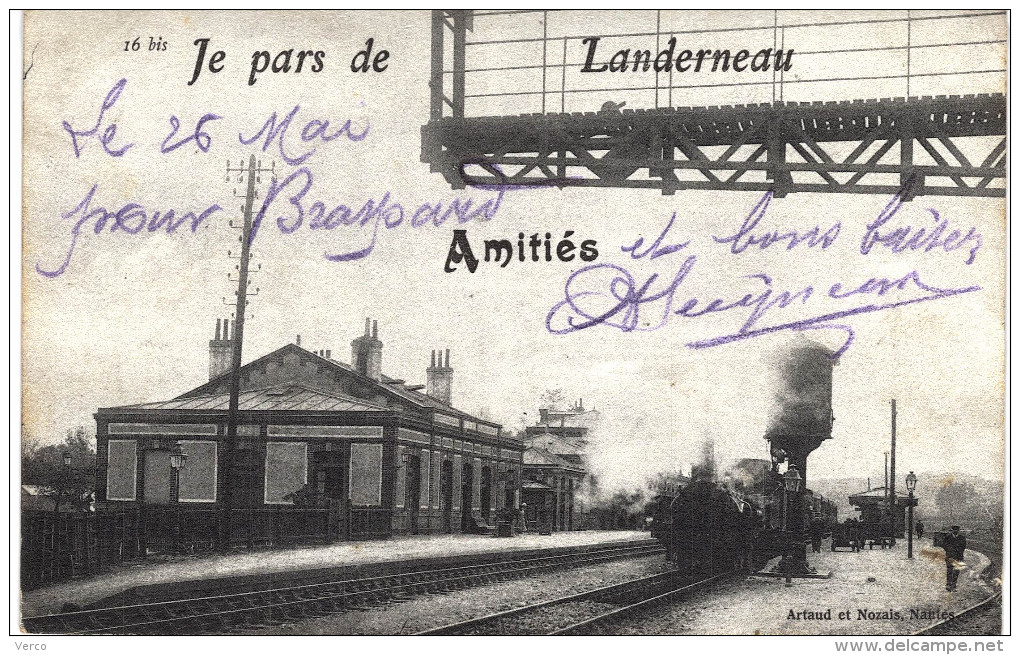 16 bis Je pars de Landerneau
Le 26 Mai
pour
Amitiés et bons baisers
Artaud et Nozais, Nantes
www.delcampe.net
Verco